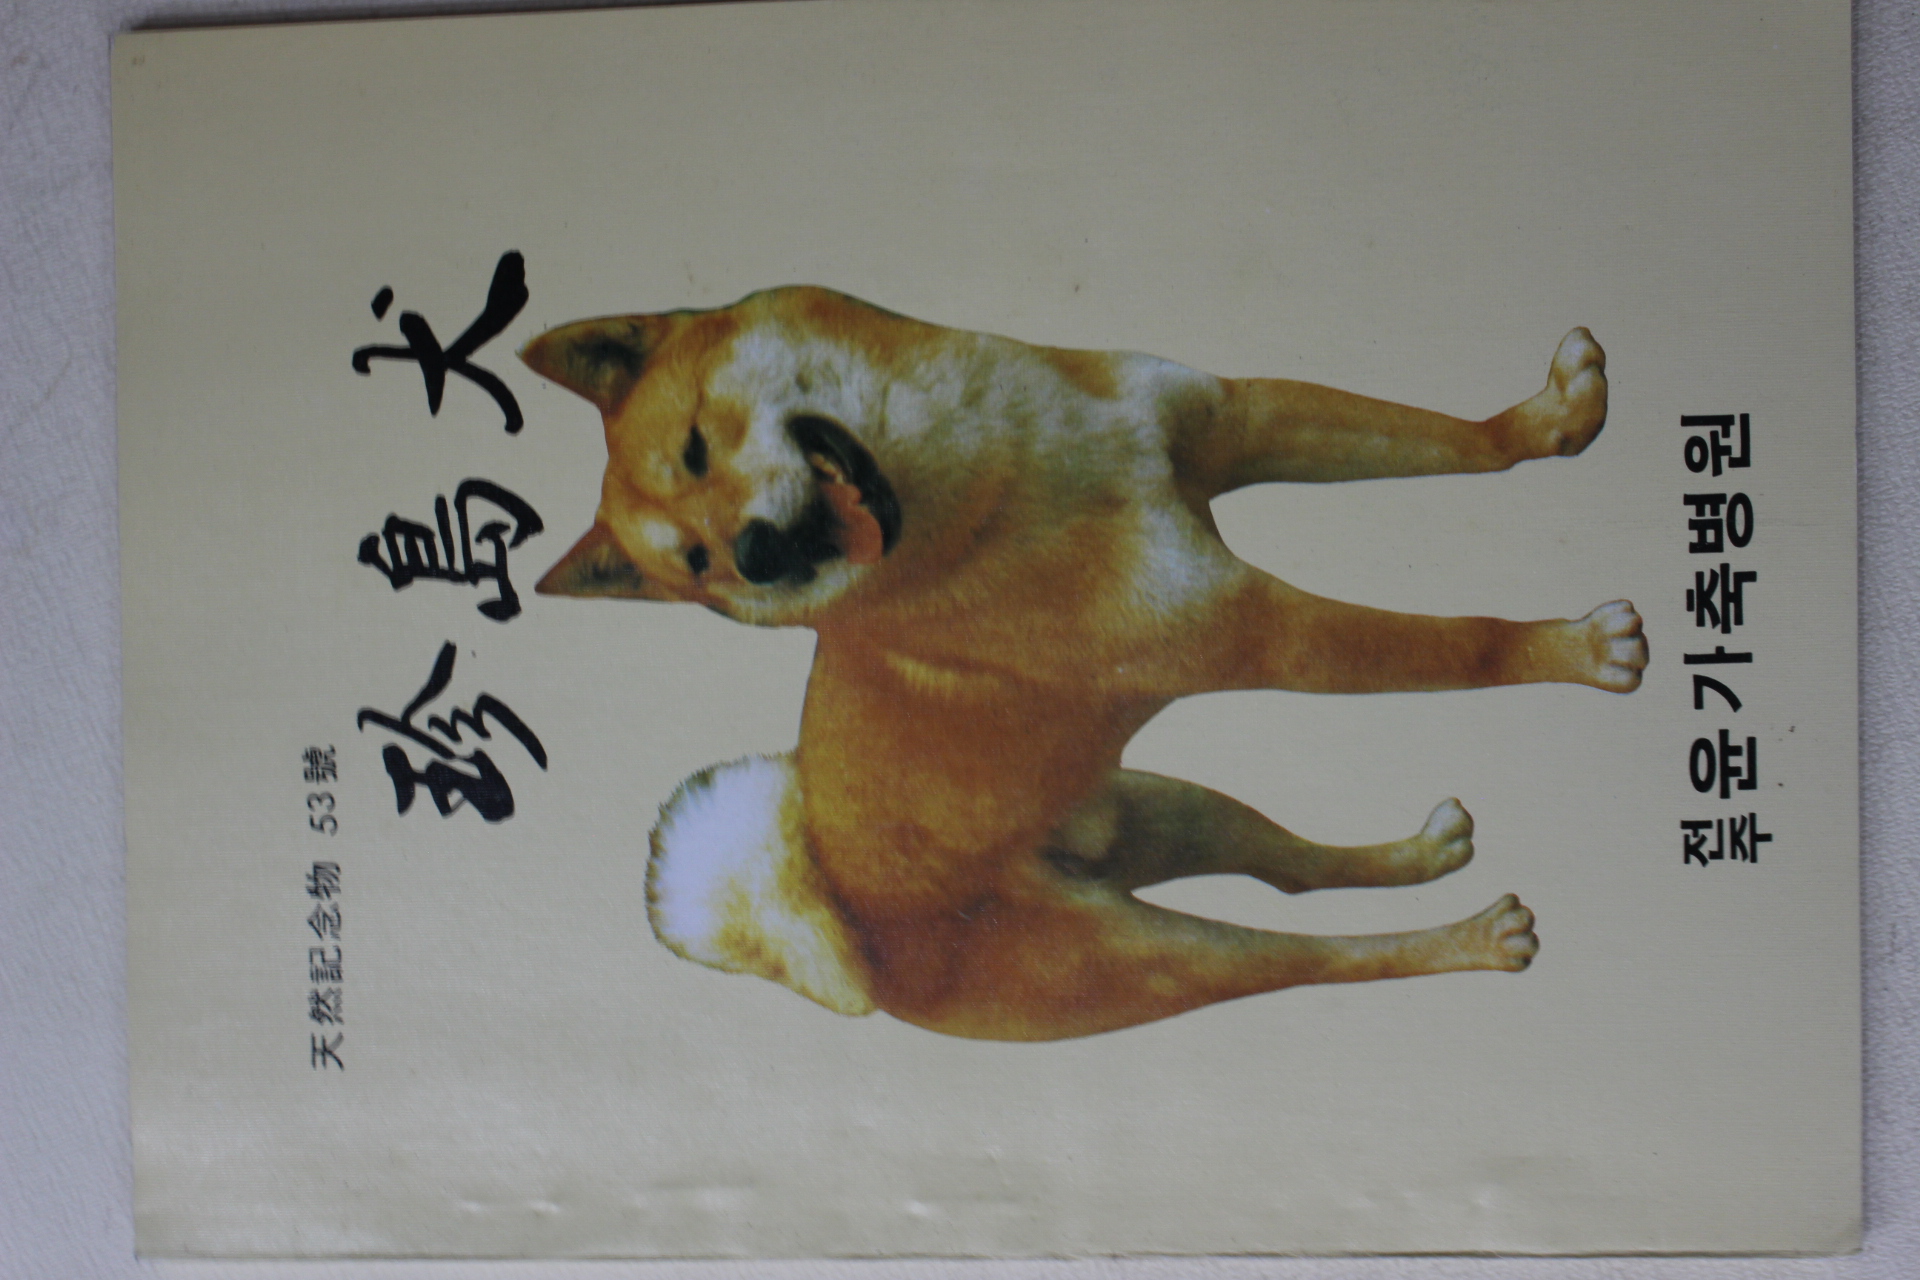 天然記念物 53號
珍島犬
전주 윤가축병원